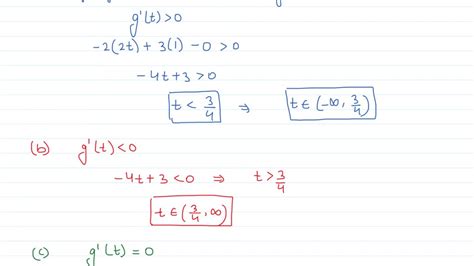 g'(t) > 0
-2(2t) + 3(1) - 0 > 0
-4t + 3 > 0
t < 3/4 ⇒ t ∈ (-∞, 3/4)
(b) g'(t) < 0
-4t + 3 < 0 ⇒ t > 3/4
t ∈ (3/4, ∞)
(c) g'(t) = 0